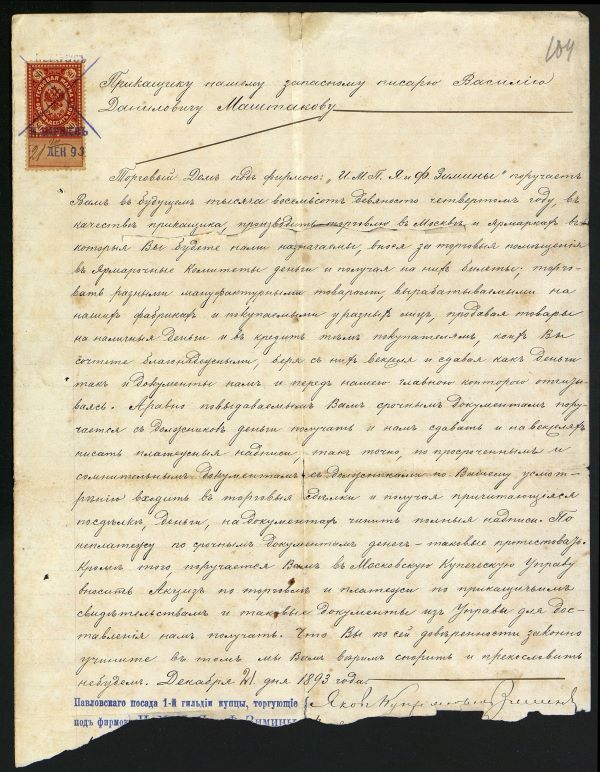 104
21 ДЕК 93
Прикащику нашему запасному писарю Василію
Даниловичу Маштакову
Торговый Домъ подъ фирмою: „И. М. П. Я и Ф. Зимины" поручаетъ
Вамъ въ будущемъ тысяча восемьсотъ девяносто четвертомъ году, въ
качествѣ прикащика, производить торговлю въ Москвѣ и Ярмаркахъ въ
которыя Вы будете нами назначаемы, внося за торговыя помѣщенія
въ Ярмарочные Комитеты деньги и получая на нихъ билеты; торго-
вать разными мануфактурными товарами, вырабатываемыми на
нашихъ фабрикахъ и покупаемыми у разныхъ лицъ, продавая товары
на наличныя деньги и въ кредитъ тѣмъ покупателямъ, коихъ Вы
сочтете благонадежными, беря съ нихъ векселя и сдавая какъ деньги
такъ и документы намъ и передъ нашею главною конторою отчиты-
ваясь. А равно по выдаваемымъ Вамъ срочнымъ документамъ пору-
чается съ должниковъ деньги получать и намъ сдавать и на векселяхъ
писать платежныя надписи, такъ точно, по просроченнымъ и
сомнительнымъ документамъ съ должниками по Вашему усмот-
рѣнію входить въ торговыя сдѣлки и получая причитающіяся
по сдѣлкѣ деньги, на документахъ чинить полныя надписи. По
неплатежу по срочнымъ документамъ денегъ – таковые протестовать.
Кромѣ того поручается Вамъ въ Московскую Купеческую Управу
вносить Акцизъ по торговлѣ и платежи по прикащичьимъ
свидѣтельствамъ и таковые документы изъ Управы для дос-
тавленія намъ получать. Что Вы по сей довѣренности законно
учините въ томъ мы Вамъ вѣримъ спорить и прекословить
небудемъ. Декабря 21 дня 1893 года
Павловскаго посада 1-й гильдіи купцы, торгующіе
подъ фирмою Зимины
Яковъ